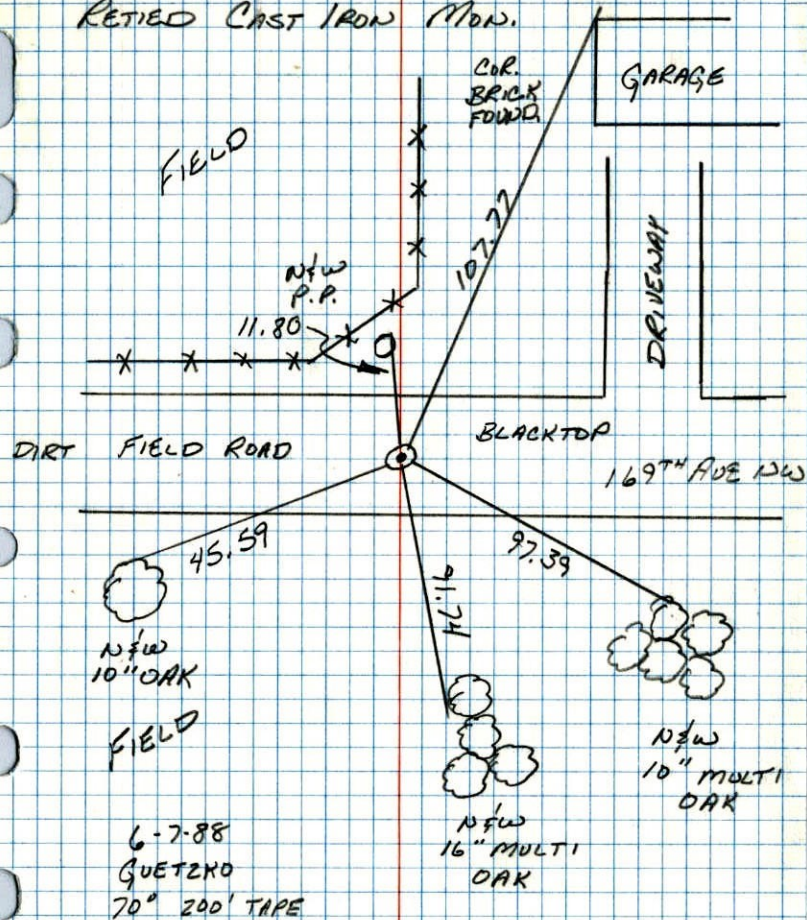 RETIED CAST IRON MON.
COR.
BRICK
FOUND.
GARAGE
FIELD
107.22
DRIVEWAY
N&W
P.P.
11.80
BLACKTOP
DIRT FIELD ROAD
169TH AVE NW
45.59
97.39
91.74
N&W
10" OAK
FIELD
N&W
10" MULTI
OAK
N&W
16" MULTI
OAK
6-7-88
GUETZKO
70° 200' TAPE